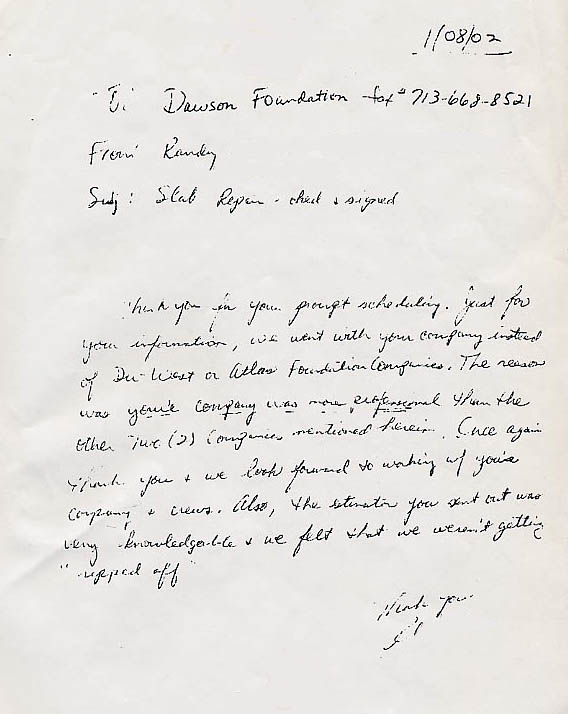 1/08/02
To: Dawson Foundation fax # 713-668-8521
From: Randy
Subj: Slab Repair - ched & signed
Thank you for your prompt scheduling. Just for
your information, we went with your company instead
of Du-West or Atlas Foundation Companies. The reason
was you're company was more professional than the
other two (2) Companies mentioned herein. Once again
thank you & we look forward to working w/ you're
company & crews. Also, the estimator you sent out was
very knowledgeable & we felt that we weren't getting
"ripped off"
Thank you